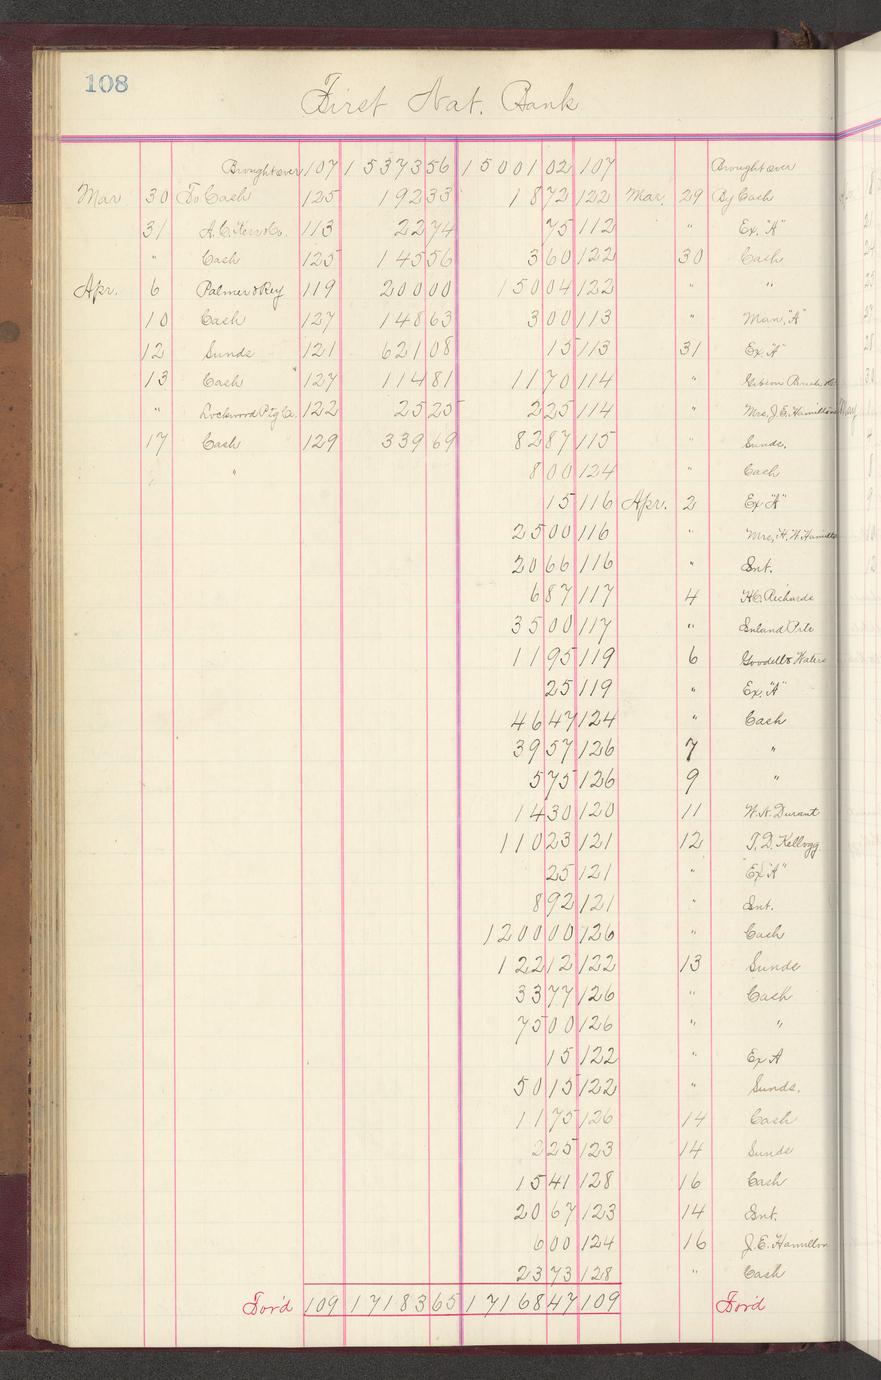 108
First Nat. Bank
Brought over 107 15373 56 15001 02 107 Brought over
Mar 30 To Cash 125 192 33 18 72 122 Mar. 29 By Cash
31 A.C. Kern &Co. 113 22 74 75 112 " Ex. "A"
" Cash 125 145 56 3 60 122 30 Cash
Apr. 6 Palmer & Rey 119 200 00 150 04 122 " "
10 Cash 127 148 63 3 00 113 " Man. "A"
12 Sunds 121 621 08 15 113 31 Ex. "A"
13 Cash 127 114 81 11 70 114 " Gibson
" Lockwood Ptg Co. 122 25 25 2 25 114 " Mrs. J.E. Hamilton
17 Cash 129 339 69 82 87 115 " Sunds.
" 8 00 124 " Cash
15 116 Apr. 2 Ex "A"
25 00 116 " Mrs. H.W.
20 66 116 " Int.
6 87 117 4 H.C. Richards
35 00 117 " Inland Prtr
11 95 119 6 Goodell & Waters
25 119 " Ex. "A"
46 47 124 " Cash
39 57 126 7 "
5 75 126 9 "
14 30 120 11 W.N. Durant
110 23 121 12 T.D. Kellogg
25 121 " Ex "A"
8 92 121 " Int.
1200 00 126 " Cash
122 12 122 13 Sunds
33 77 126 " Cash
75 00 126 " "
15 122 " Ex A
50 15 122 " Sunds.
11 75 126 14 Cash
2 25 123 14 Sunds
15 41 128 16 Cash
20 67 123 14 Int.
6 00 124 16 J.E. Hamilton
23 73 128 " Cash
For'd 109 17183 65 17168 47 109 For'd